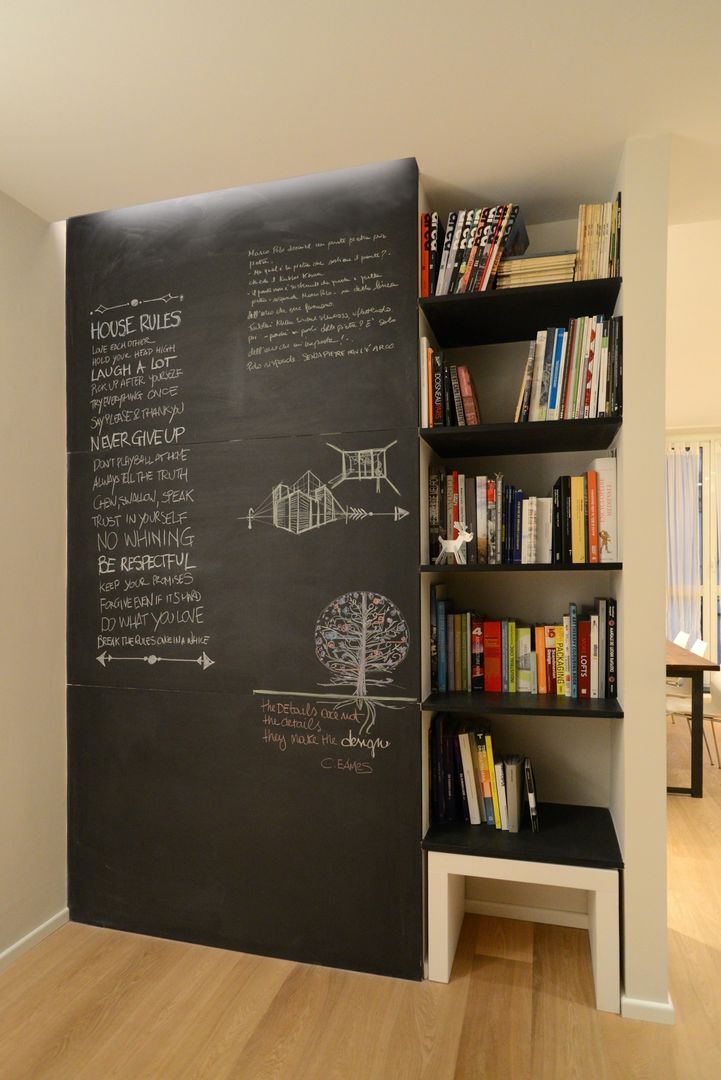 HOUSE RULES
LOVE EACH OTHER
HOLD YOUR HEAD HIGH
LAUGH A LOT
PICK UP AFTER YOURSELF
TRY EVERYTHING ONCE
SAY PLEASE & THANK YOU
NEVER GIVE UP
DON'T PLAY BALL AT HOME
ALWAYS TELL THE TRUTH
CHEW, SWALLOW, SPEAK
TRUST IN YOURSELF
NO WHINING
BE RESPECTFUL
KEEP YOUR PROMISES
FORGIVE EVEN IF IT'S HARD
DO WHAT YOU LOVE
BREAK THE RULES ONCE IN A WHILE
Marco Polo descrive un ponte pietra per
pietra.
- Ma qual è la pietra che sostiene il ponte? -
chiede il Kublai Kan
- il ponte non è sostenuto da questa o quella
pietra - risponde Marco Polo - ma dalla linea
dell'arco che esse formano.
Kublai Kan rimane silenzioso, riflettendo.
poi - perché mi parli delle pietre? È solo
dell'arco che mi importa! -
Polo risponde: SENZA PIETRE NON C'È ARCO
the DEtails are not
the details
they make the design
C. EAMES
DOISNEAU PARIS
PACKAGING
LOFTS